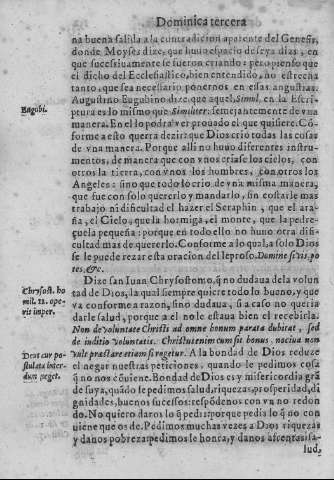 Dominica tercera
na buena salida a la contradicion aparente del Genesis,
donde Moyses dize, que huuo espacio de seys dias, en
que sucessiuamente se fueron criando: pero pienso que
el dicho del Ecclesiastico, bien entendido, no estrecha
tanto, que sea necessario ponernos en essas angustias.
Augustino Eugubino dize, que aquel, Simul, en la Escri-
Eugubi.
ptura es lo mismo que Similiter: semejantemente de vna
manera. En el lo podra ver prouado el que quisiere. Cõ-
forme a esto querra dezir que Dios criò todas las cosas
de vna manera. Porque alli no huuo diferentes instru-
mentos, de manera que con vnos criasse los cielos, con
otros la tierra, con vnos los hombres, con otros los
Angeles: sino que todo lo crio de vna misma manera,
que fue con solo quererlo y mandarlo, sin costarle mas
trabajo ni dificultad el hazer el Seraphin, que el ara-
ña, el Cielo, que la hormiga, el monte, que la pedre-
çuela pequeña: porque en todo ello no huuo otra difi-
cultad mas de quererlo. Conforme a lo qual, a solo Dios
se le puede rezar esta oracion del leproso. Domine si vis, po-
tes, &c.
Chrysost. ho
mil. 21. ope-
ris imper.
Dize san Iuan Chrysostomo, q̃ no dudaua de la volun
tad de Dios, la qual siempre quiere todo lo bueno, y que
va conforme a razon, sino dudaua, si a caso no queria
darle salud, porque a el no le estaua bien el recebirla.
Non de voluntate Christi ad omne bonum parata dubitat, sed
de iuditio voluntatis. Christus enim cum sit bonus, nociua non
Deus cur po-
stulata inter-
dum neget.
vult præstare etiam si rogetur. A la bondad de Dios reduze
el negar nuestras peticiones, quando le pedimos cosa
q̃ no nos cõuiene. Bondad de Dios es y misericordia grã
de suya, quãdo le pedimos salud, riquezas, prosperidad, di
gnidades, buenos sucessos: respõdenos con vn no redon
do. No quiero daros lo q̃ pedis: porque pedis lo q̃ no con
uiene que os de. Pedimos muchas vezes a Dios riquezas
y danos pobreza: pedimosle honra, y danos afrentas: sa-
lud,